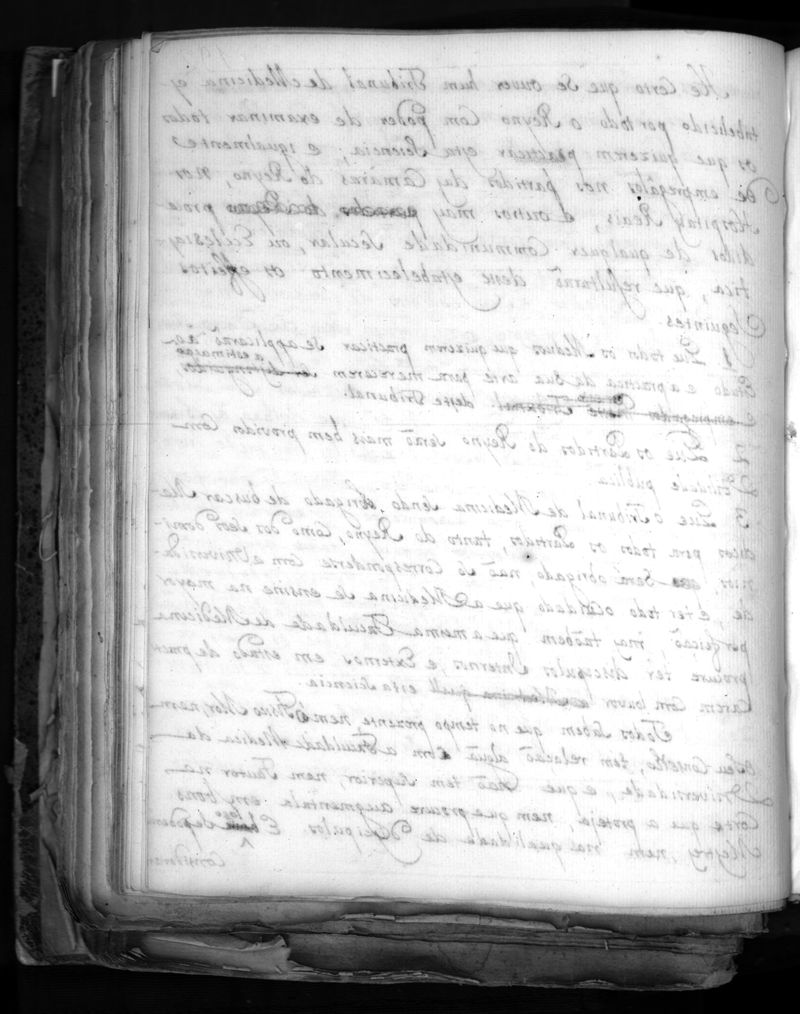 He Certo que se ouver hum Tribunal de Medicina es
tabelecido por todo o Reyno Com poder de examinar todos
os que quizerem practicar esta Sciencia; e igualmente
de empregálos nos partidos das Camáras do Reyno, nos
Hospitaes Reais, e outros mays do Reyno prove
didos de qualquer Communidade Secular, ou Ecclesias
tica, que resultaraõ deste estabelecimento os effeitos
Seguintes.
1 Que todos os Medicos que quizerem practicar se applicaraõ ao
Estudo e a practica da sua arte para merecerem a estimaçaõ
deste Tribunal.
2 Que os Partidos do Reyno seraõ mais bem providos Com
Utilidade publica
3 Que o Tribunal de Medicina sendo obrigado de buscar Me
dicos para todos os Partidos, tanto do Reyno, Como dos Seos domi
nios, Será obrigado naõ só Corresponderse Com a Universida
de, e ter todo o Cuidado, que a Medicina se ensine na mayor
perfeiçaõ, mas taõbem que a mesma Faculdade de Medicina
procure ter discipulos Internos, e Externos em estado de practi
carem Com louvor esta Sciencia.
Todos sabem que no tempo prezente nem o Fisico Mor, nem
o seu Conselho, tem relaçaõ algũa Com a Faculdade Medica da
Universidade, e que naõ tem Superior, nem Fautor na
Corte que a proteja, nem que procure augmentala em bons
Mestres, nem nas qualidades de Discipulos. E